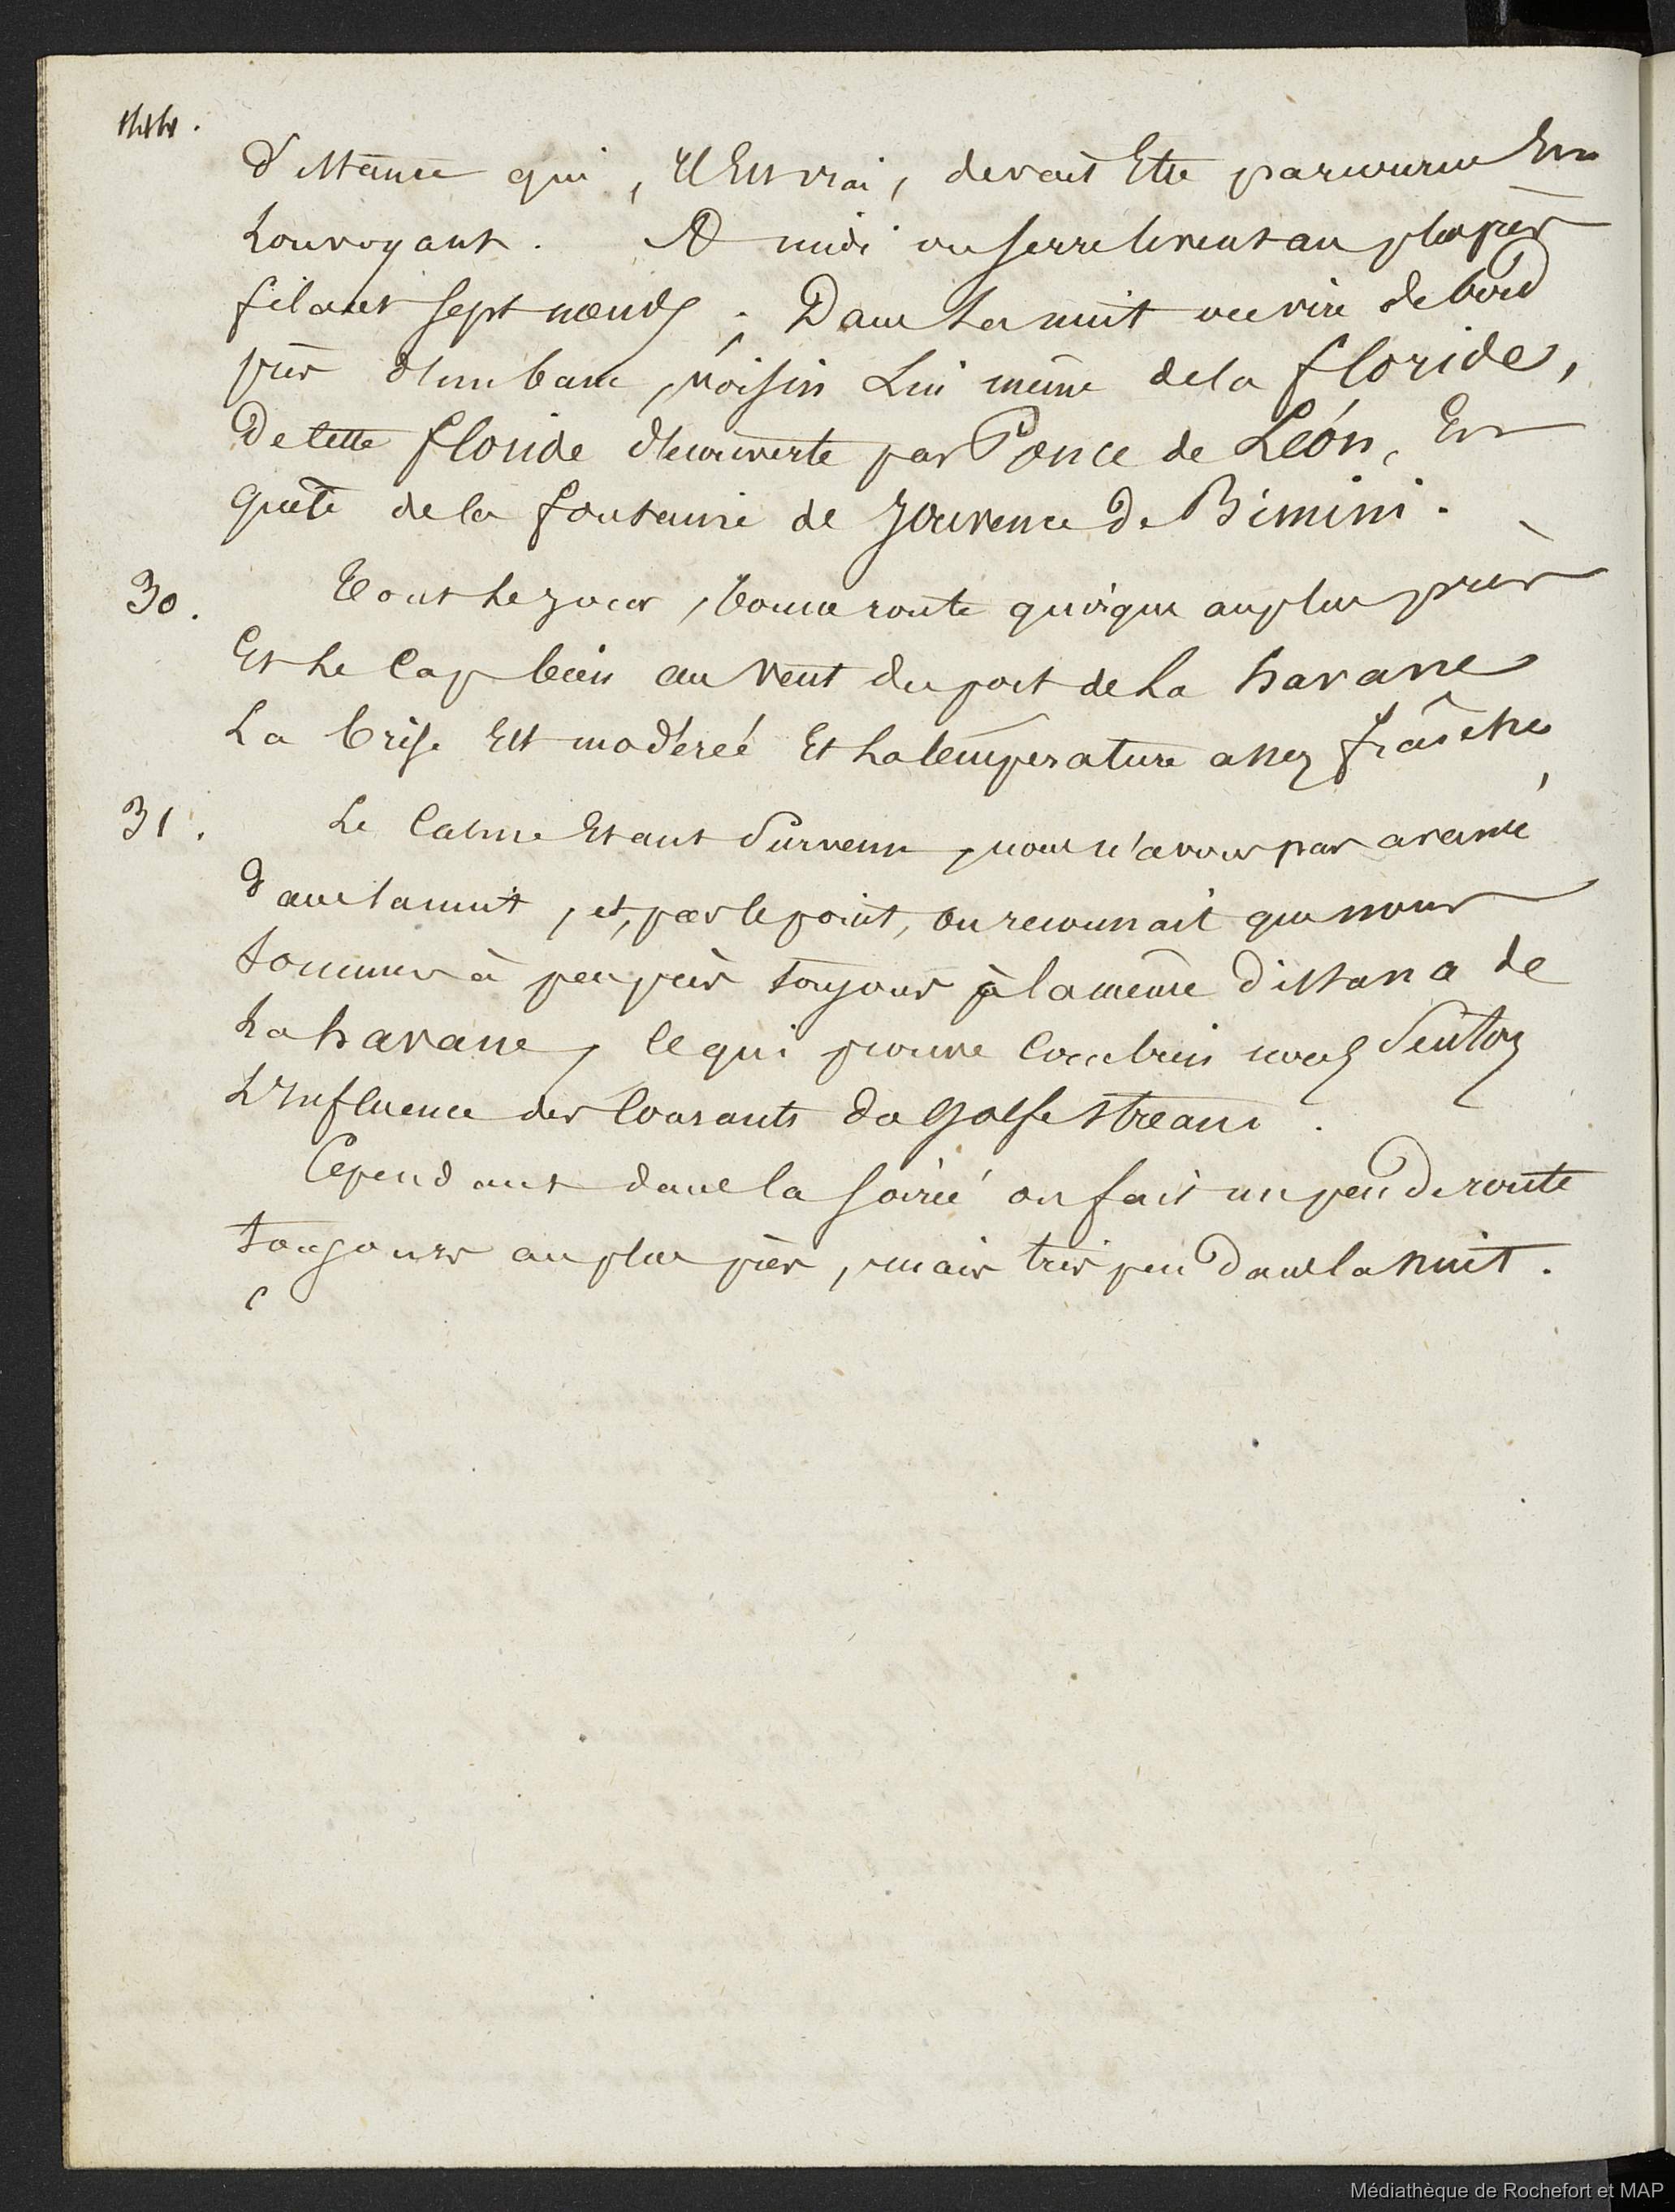 144.
distance qui, il est vrai, devait être parcourue en
louvoyant. A midi on serre le vent au plus près
filant sept nœuds ; Dans la nuit on vire de bord
près d'un banc, voisin lui même de la Floride,
De cette Floride découverte par Ponce de León, en
quête de la fontaine de Jouvence de Bimini.
30. Tout le jour, bonne route quoique au plus près
Et le Cap bien au vent du port de la havane
La brise est modérée et la température assez fraîche,
31. Le Calme étant survenu, nous n'avons pas avancé
dans la nuit, et, par le point, on reconnait que nous
sommes à peu près toujours à la même distance de
la havane, ce qui prouve combien nous sentons
l'influence des Courants du Golfe Stream.
Cependant dans la soirée on fait un peu de route
toujours au plus près, mais très peu dans la nuit.
Médiathèque de Rochefort et MAP